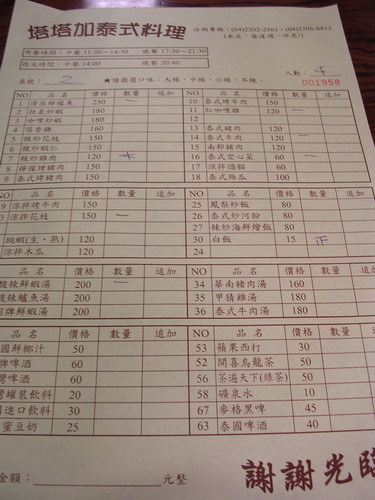 塔塔加泰式料理
洽詢專線:(04)2202-2561、(04)2206-8812
用餐時間:中餐11:30~14:30 晚餐17:30~21:30
出菜時間:中餐14:00 晚餐20:40
桌號: 2 ★請圈選口味:大辣、中辣、小辣、不辣。 人數: 4
001958
NO 品名 價格 數量 追加 NO 品名 價格 數量 追加
1 清蒸檸檬魚 250 一 10 泰式烤牛肉 150
2 180 11 紅咖哩雞 120 一
3 咖哩炒蝦 180
4 160 13 泰式豬肉 120
5 辣炒花枝 150 14 泰式牛肉 120 一
6 辣炒蝦仁 150 15 南邦豬肉 120
7 辣炒雞肉 120 16 泰式空心菜 60 一
8 檸檬豬豬肉 150 17 涼拌過貓 60
9 泰式烤豬肉 120 18 泰式絲瓜 100
品名 價格 數量 追加 NO 品名 價格 數量 追加
涼拌烤牛肉 150 25 鳳梨炒飯 80
涼拌花枝 150 一 26 泰式炒河粉 80
27 辣炒海鮮燴飯 80
蝦(生、熟) 120 30 白飯 15 正
涼拌木瓜 120 24
品名 價格 數量 追加 NO 品名 價格 數量 追加
酸辣鮮蝦湯 200 一 34 華南豬肉湯 160
酸辣鱸魚湯 200 35 甲猜雞湯 180
招牌鮮蝦湯 200 36 泰式牛肉湯 180
品名 價格 數量 追加 NO 品名 價格 數量 追加
國鮮椰汁 50 53 蘋果西打 30
牌啤酒 60 52 開喜烏龍茶 50
啤酒 60 56 茶過天下(綠茶) 50
罐裝飲料 20 58 礦泉水 10
進口飲料 30 67 麥格黑啤 45
蜜豆奶 25 63 泰國啤酒 40
金額: 元整
謝謝光臨